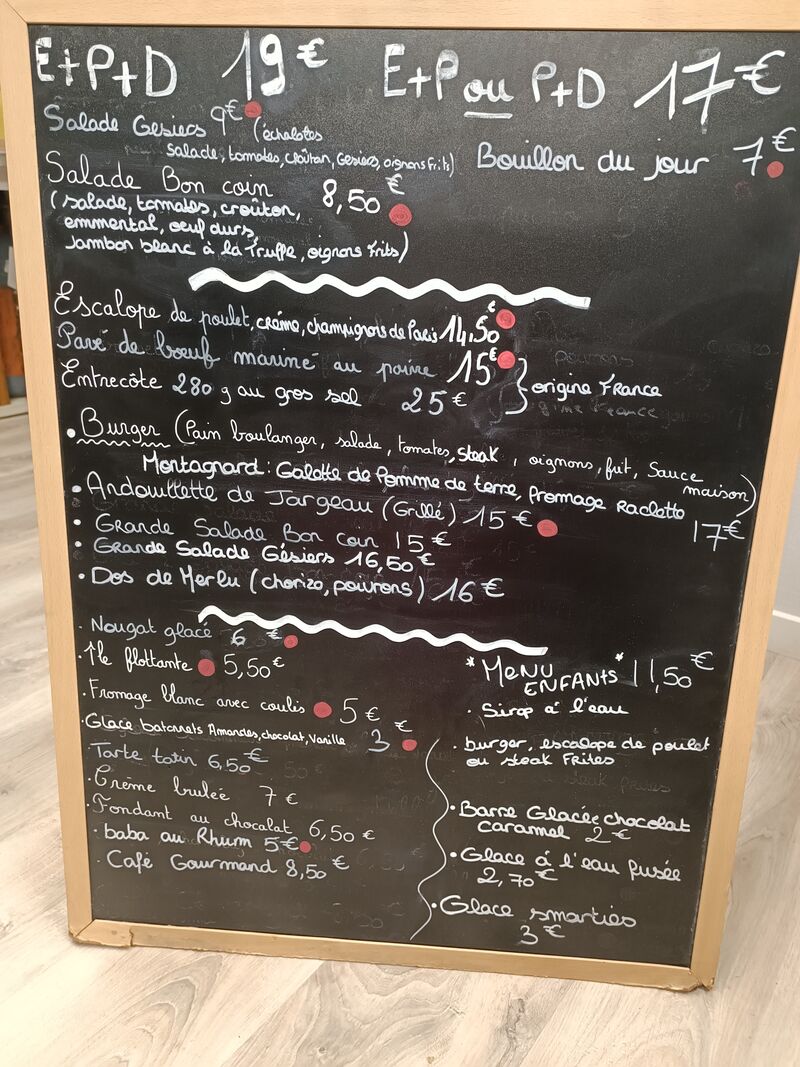 E+P+D 19€ E+P ou P+D 17€
Salade Gesiers 9€ (échalotes
salade, tomates, croûton, Gesiers, oignons frits)
Bouillon du jour 7€
Salade Bon coin 8,50€
(salade, tomates, croûton,
emmental, oeuf durs,
Jambon blanc à la Truffe, oignons Frits)
Escalope de poulet, crème, champignons de Paris 14,50€
Pavé de bœuf mariné au poivre 15€
Entrecôte 280 g au gros sel 25€
origine France
• Burger (Pain boulanger, salade, tomates, steak, oignons, frit, Sauce
maison)
Montagnard: Galette de Pomme de terre, fromage Raclette
17€
• Andouillette de Jargeau (Grillé) 15€
• Grande Salade Bon coin 15€
• Grande Salade Gésiers 16,50€
• Dos de Merlu (chorizo, poivrons) 16€
• Nougat glacé 6€
• île flottante 5,50€
• Fromage blanc avec coulis 5€
• Glace batonnets Amandes, chocolat, Vanille 3€
• Tarte tatin 6,50€
• Crème brulée 7€
• Fondant au chocolat 6,50€
• baba au Rhum 5€
• Café Gourmand 8,50€
*MENU
ENFANTS* 11,50€
• Sirop à l'eau
• burger, escalope de poulet
ou steak Frites
• Barre Glacée chocolat
caramel 2€
• Glace à l'eau fusée
2,70€
• Glace smarties
3€